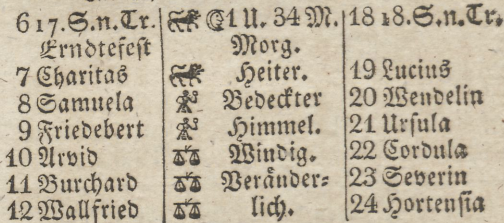 6 17.S.n.Tr. 1 U. 34 M. 18 18.S.n.Tr.
Erndtefest Morg.
7 Charitas Heiter. 19 Lucius
8 Samuela Bedeckter 20 Wendelin
9 Friedebert Himmel. 21 Ursula
10 Arvid Windig. 22 Cordula
11 Burchard Veränder= 23 Severin
12 Wallfried lich. 24 Hortensia